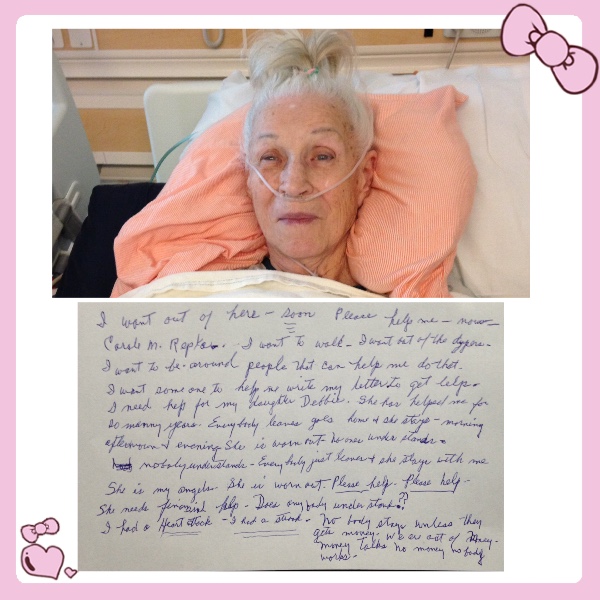 I want out of here - soon Please help me - now -
Carole M. I want to walk - I want out of the
I want to be around people that can help me do that.
I want some one to help me write my letter to get help.
I need help for my daughter Debbie. She has helped me for
so manny years. Everybody leaves goes home & she stays - morning
afternoon & evening She is worn out. No one under stands.
nobody understands - Every body just leaves & she stays with me
She is my angel. She is worn out. Please help. Please help -
She needs help - Does any body under stand??
I had a Heart - I had a - No body stays unless they
gets money. We are out of Money -
Money talks No money no body
works.